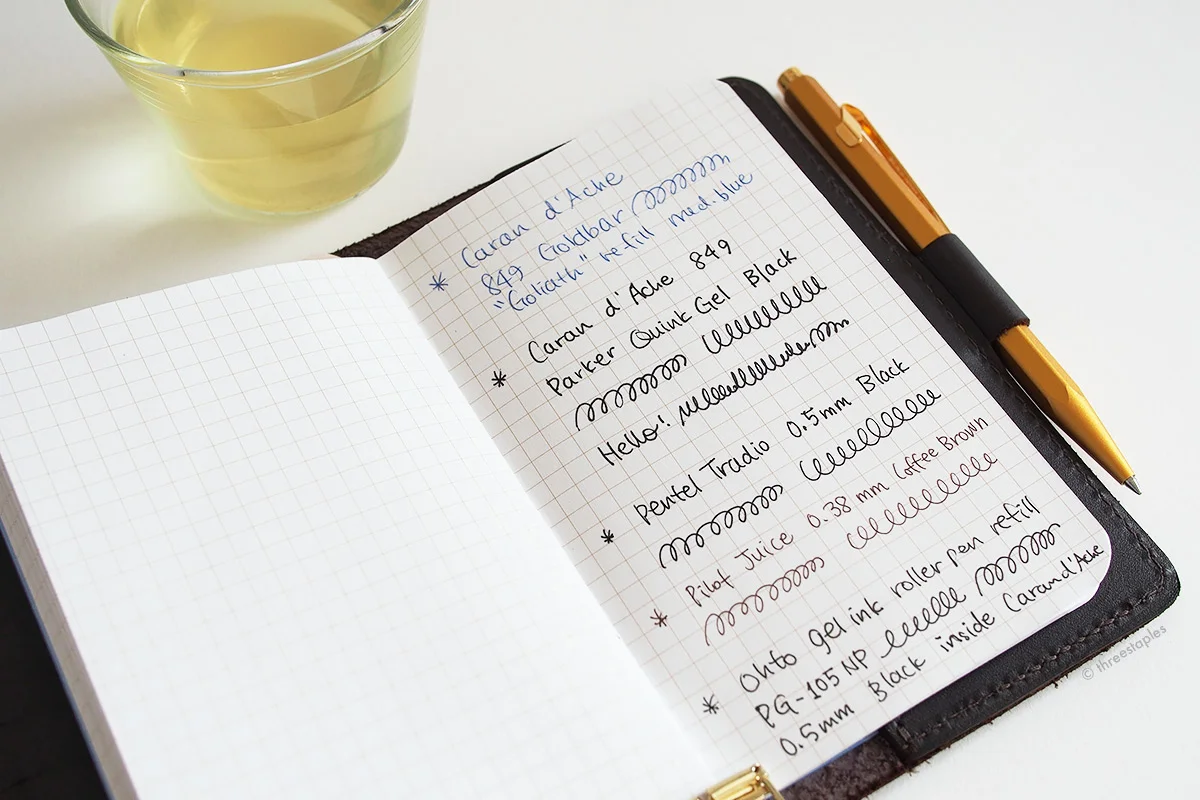 * Caran d'Ache
849 Goldbar
"Goliath" refill med. blue
* Caran d'Ache 849
Parker Quink Gel Black
Hello!
* Pentel Tradio 0.5mm Black
* Pilot Juice 0.38 mm Coffee Brown
* Ohto gel ink roller pen refill
PG-105 NP
0.5mm Black inside Caran d'Ache
© threestaples